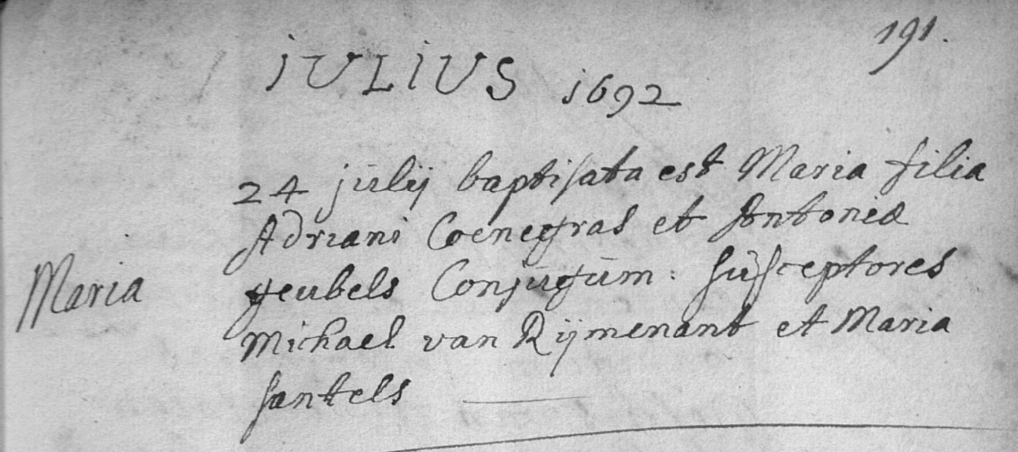 191.
JULIUS 1692
24 julij baptisata est Maria filia
Adriani Coenegras et Antoniæ
Maria
geubels Conjugum: susceptores
Michael van Rijmenant et Maria
santels